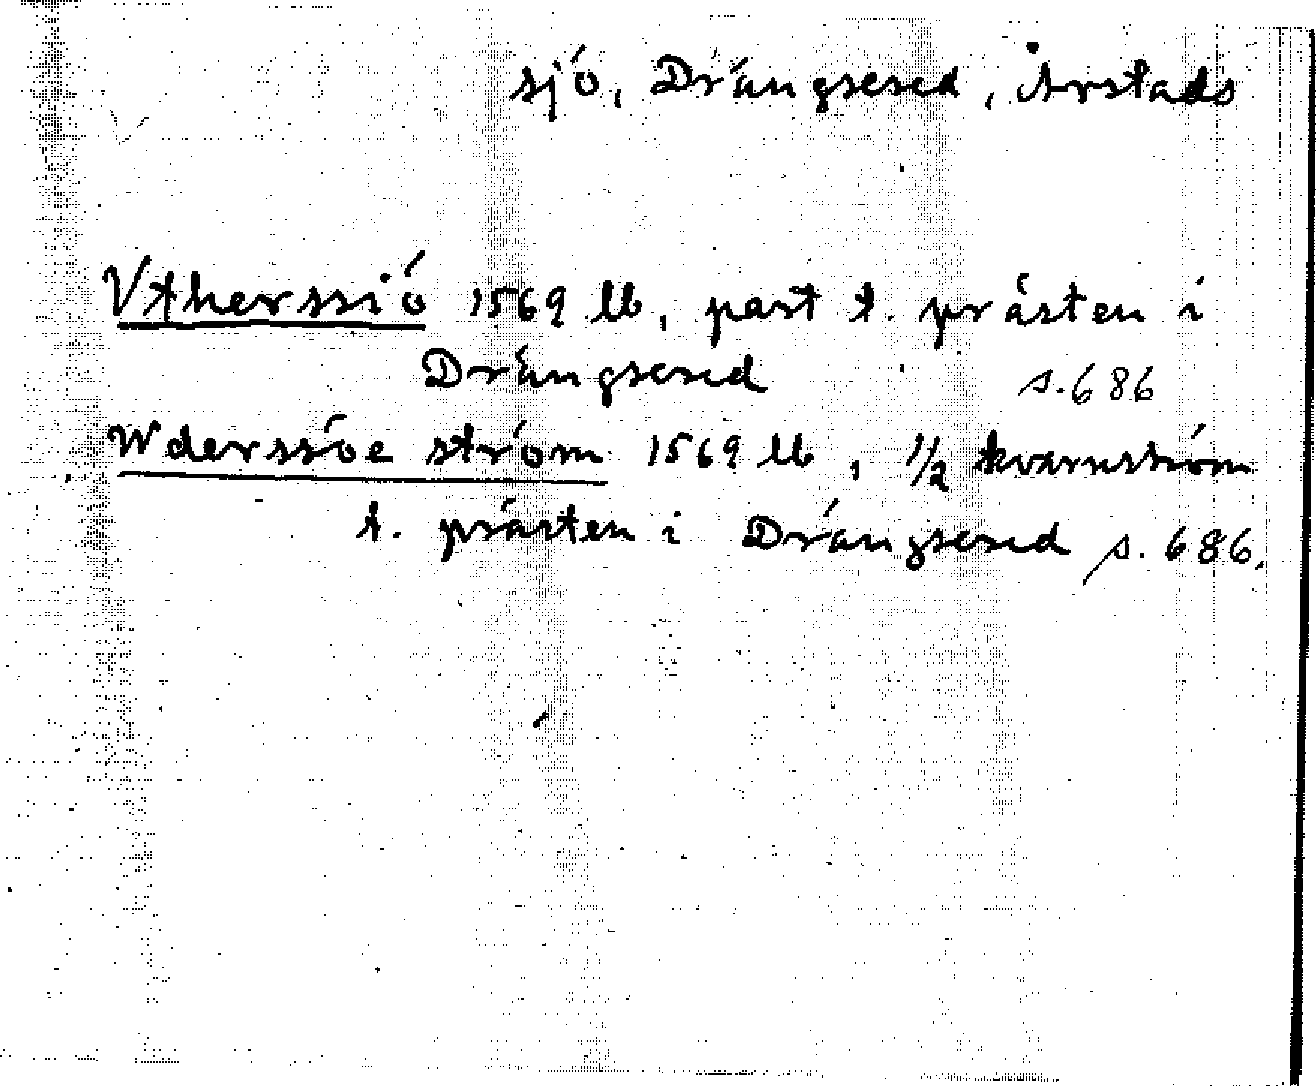 sjö, Drängsered, Årstads
Vtherssiö 1569 lb, part t. prästen i
Drängsered s. 686
Wderssöe ström 1569 lb, 1/2 kvarnström
t. prästen i Drängsered s. 686.